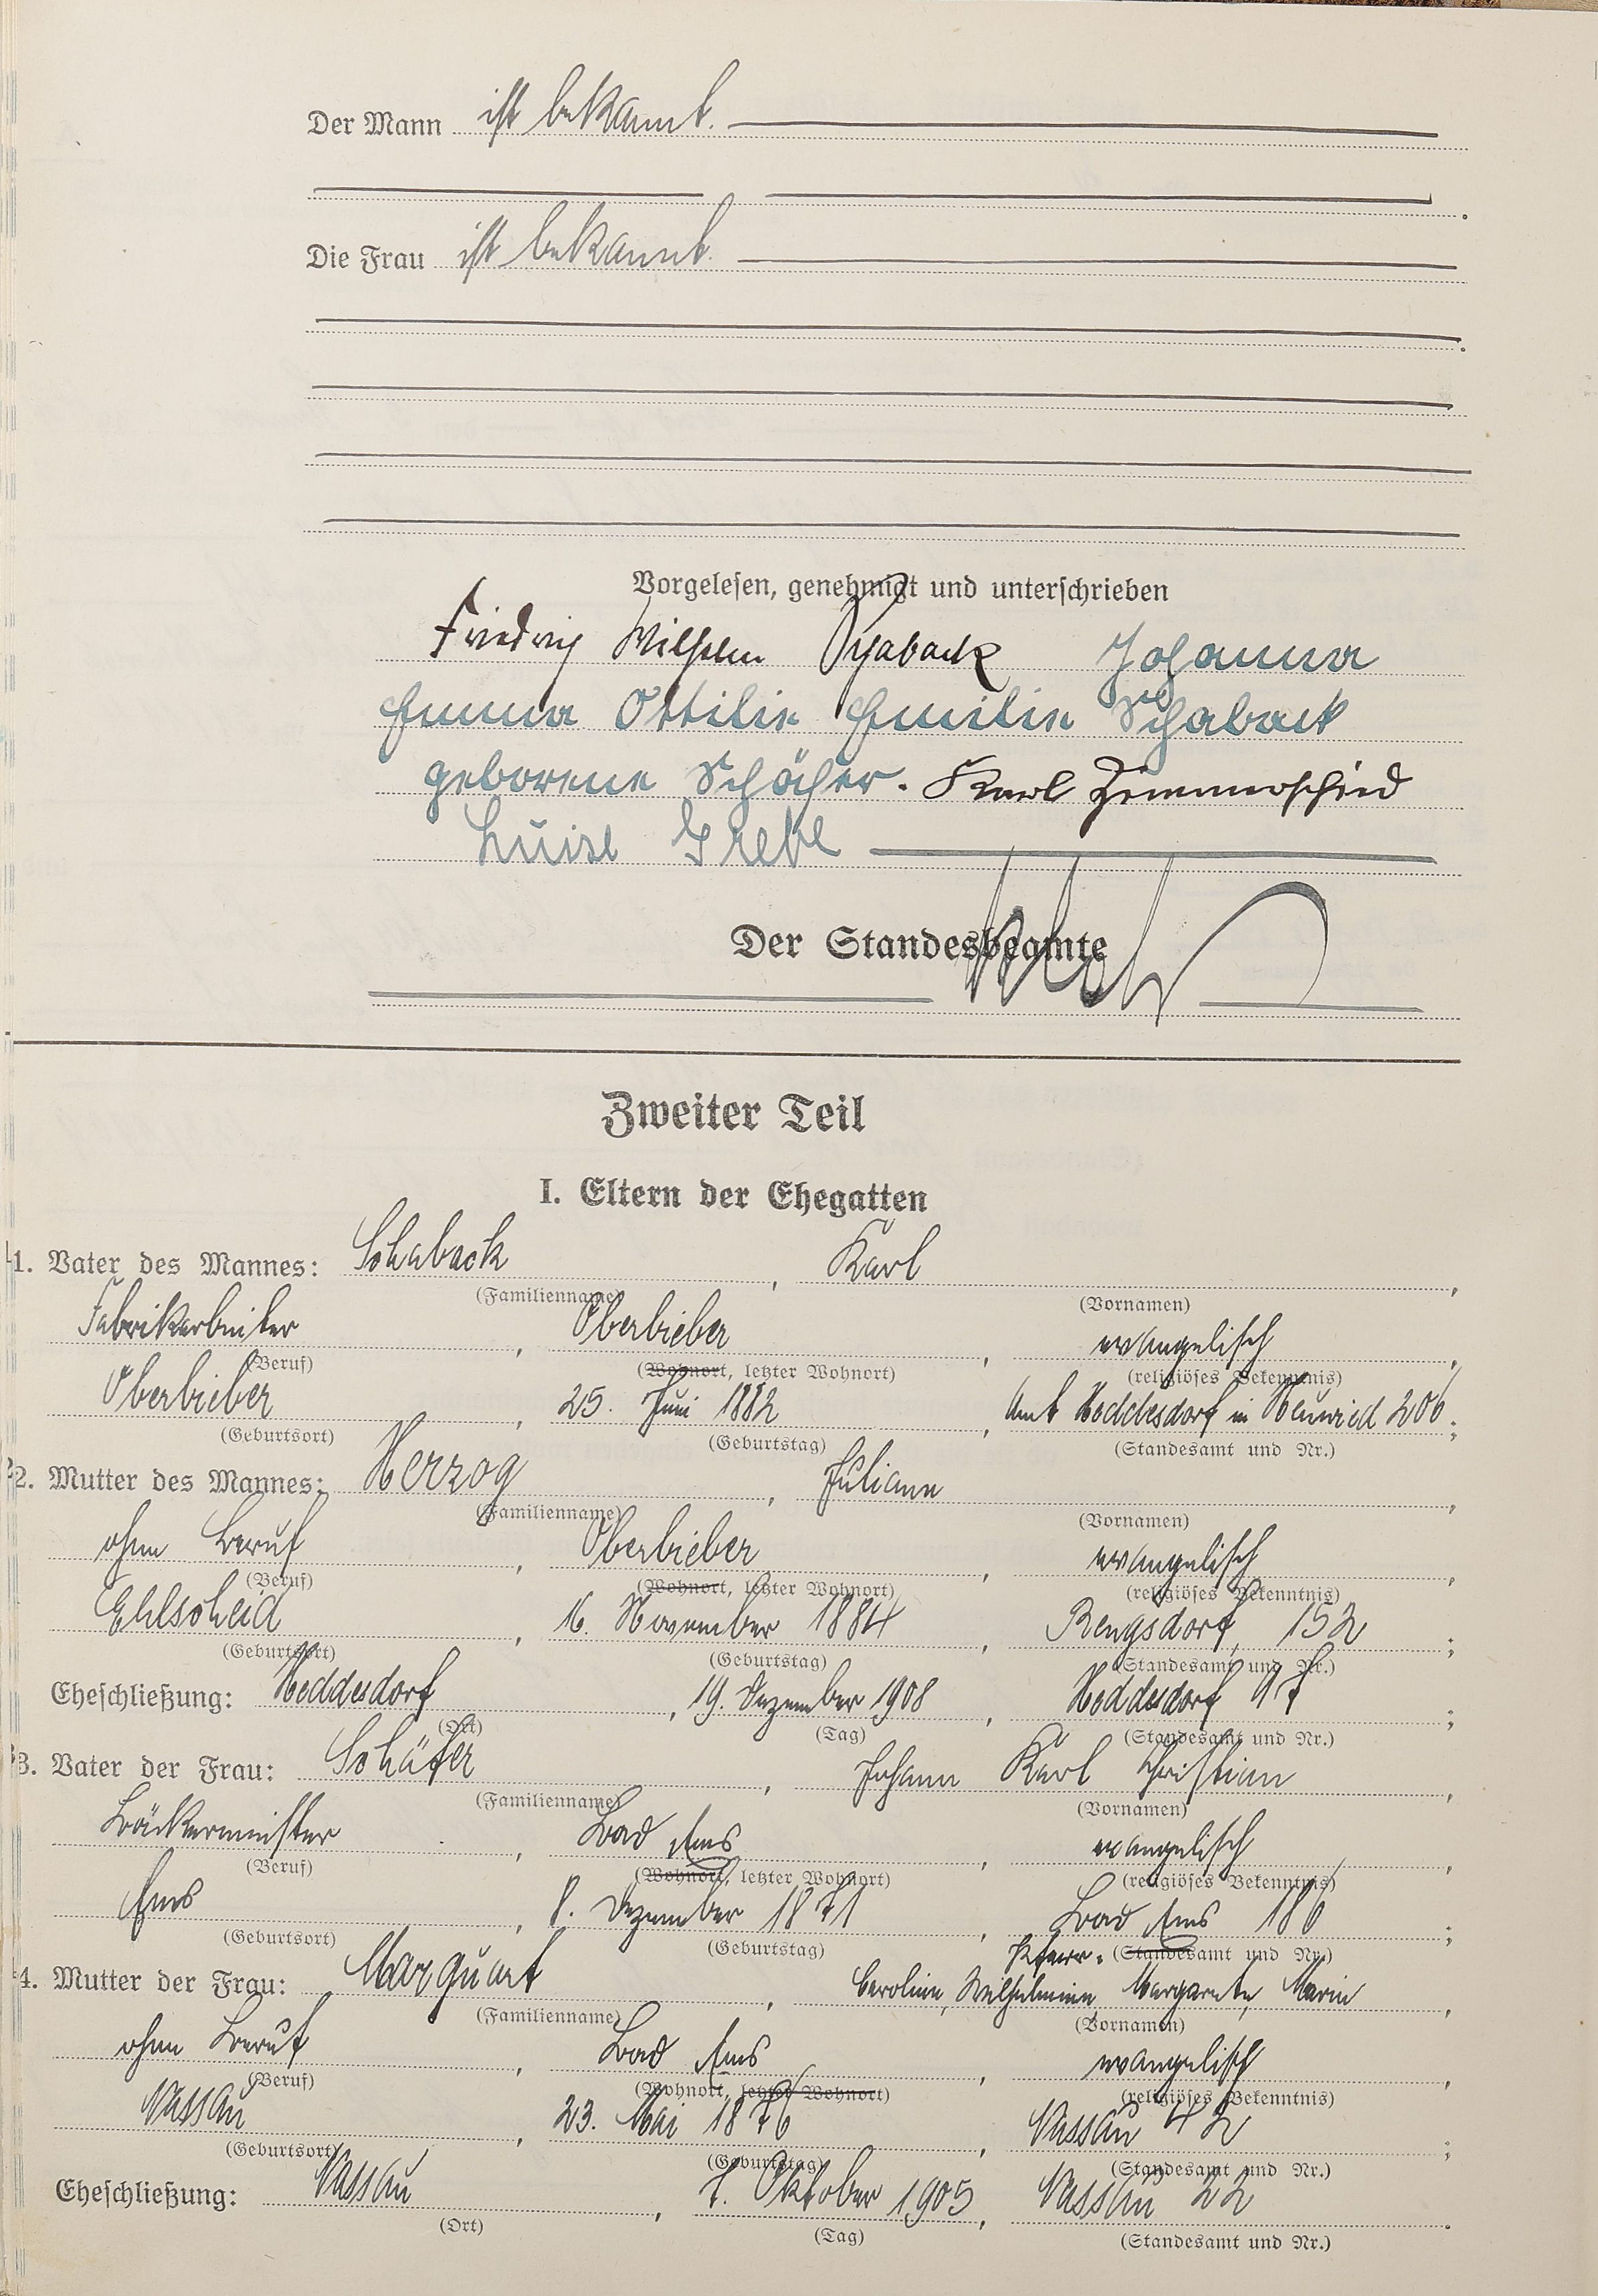 Der Mann ist bekannt.
Die Frau ist bekannt.
Vorgelesen, genehmigt und unterschrieben
Friedrich Wilhelm Schaback Johanna
Emma Ottilie Emilie Schaback
geborene Schäfer. Karl Zimmerschied
Luise Grebe
Der Standesbeamte
Zweiter Teil
I. Eltern der Ehegatten
1. Vater des Mannes: Schaback, Karl,
(Familienname) (Vornamen)
Fabrikarbeiter, Oberbieber, evangelisch,
(Beruf) (Wohnort, letzter Wohnort) (religiöses Bekenntnis)
Oberbieber, 25. Juni 1882, Amt Heddesdorf in Neuwied 206;
(Geburtsort) (Geburtstag) (Standesamt und Nr.)
2. Mutter des Mannes: Herzog, Juliane,
(Familienname) (Vornamen)
ohne Beruf, Oberbieber, evangelisch,
(Beruf) (Wohnort, letzter Wohnort) (religiöses Bekenntnis)
Ehlscheid, 16. November 1884, Rengsdorf, 152;
(Geburtsort) (Geburtstag) (Standesamt und Nr.)
Eheschließung: Heddesdorf, 19. Dezember 1908, Heddesdorf 97;
(Ort) (Tag) (Standesamt und Nr.)
3. Vater der Frau: Schäfer, Johann Karl Christian,
(Familienname) (Vornamen)
Bäckermeister, Bad Ems, evangelisch,
(Beruf) (Wohnort, letzter Wohnort) (religiöses Bekenntnis)
Ems, 8. Dezember 1871, Bad Ems 186;
(Geburtsort) (Geburtstag) Pfarr- (Standesamt und Nr.)
4. Mutter der Frau: Marquart, Caroline, Wilhelmine, Margarete, Marie,
(Familienname) (Vornamen)
ohne Beruf, Bad Ems, evangelisch,
(Beruf) (Wohnort, letzter Wohnort) (religiöses Bekenntnis)
Nassau, 23. Mai 1876, Nassau 42;
(Geburtsort) (Geburtstag) (Standesamt und Nr.)
Eheschließung: Nassau, 7. Oktober 1905, Nassau 22.
(Ort) (Tag) (Standesamt und Nr.)